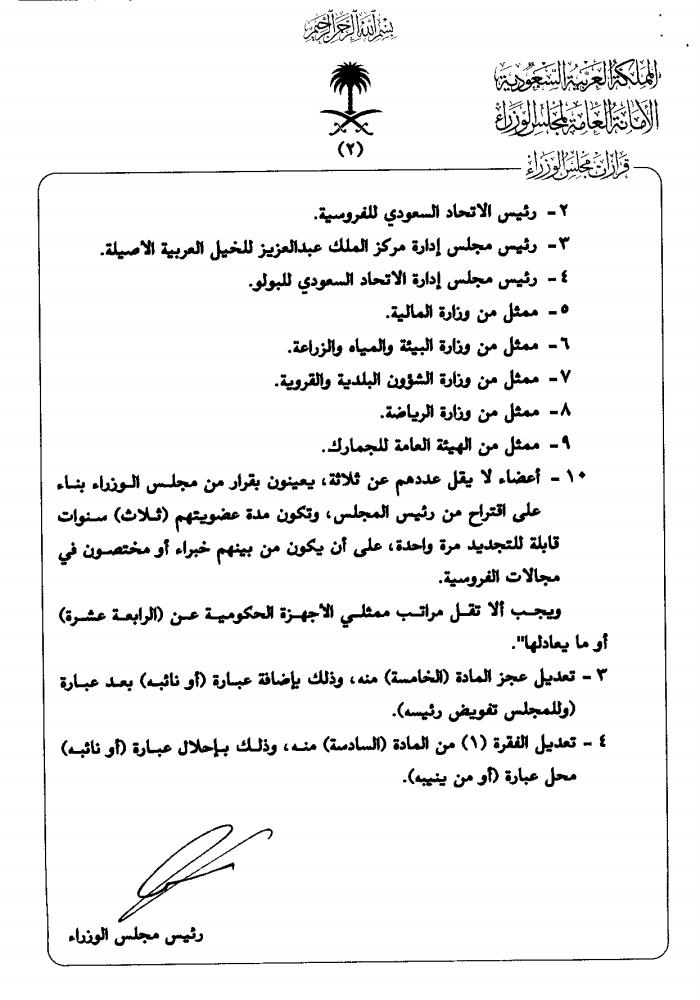 بسم الله الرحمن الرحيم
المملكة العربية السعودية
الأمانة العامة لمجلس الوزراء
(٢)
قرارات مجلس الوزراء
٢- رئيس الاتحاد السعودي للفروسية.
٣- رئيس مجلس إدارة مركز الملك عبدالعزيز للخيل العربية الأصيلة.
٤- رئيس مجلس إدارة الاتحاد السعودي للبولو.
٥- ممثل من وزارة المالية.
٦- ممثل من وزارة البيئة والمياه والزراعة.
٧- ممثل من وزارة الشؤون البلدية والقروية.
٨- ممثل من وزارة الرياضة.
٩- ممثل من الهيئة العامة للجمارك.
١٠- أعضاء لا يقل عددهم عن ثلاثة، يعينون بقرار من مجلس الوزراء بناء
على اقتراح من رئيس المجلس، وتكون مدة عضويتهم (ثلاث) سنوات
قابلة للتجديد مرة واحدة، على أن يكون من بينهم خبراء أو مختصون في
مجالات الفروسية.
ويجب ألا تقل مراتب ممثلي الأجهزة الحكومية عن (الرابعة عشرة)
أو ما يعادلها".
٣- تعديل عجز المادة (الخامسة) منه، وذلك بإضافة عبارة (أو نائبه) بعد عبارة
(وللمجلس تفويض رئيسه).
٤- تعديل الفقرة (١) من المادة (السادسة) منه، وذلك بإحلال عبارة (أو نائبه)
محل عبارة (أو من ينيبه).
رئيس مجلس الوزراء